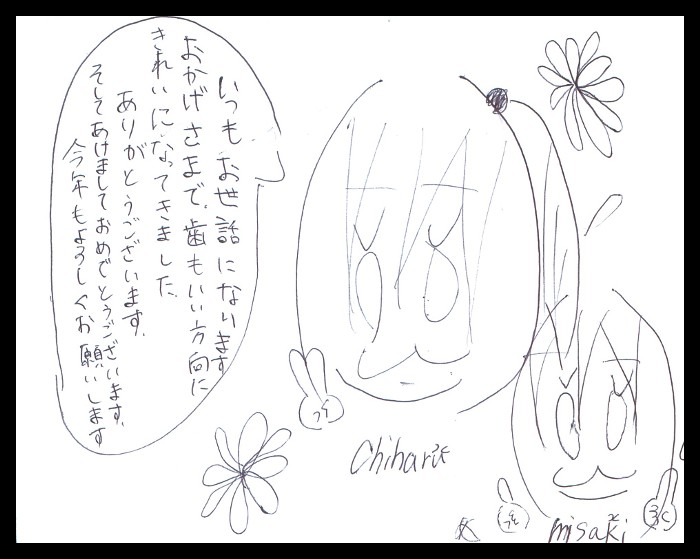 いつもお世話になります
おかげさまで、歯もいい方向に
きれいになってきました。
ありがとうございます。
そしてあけましておめでとうございます。
今年もよろしくお願いします
Chiharu
misaki